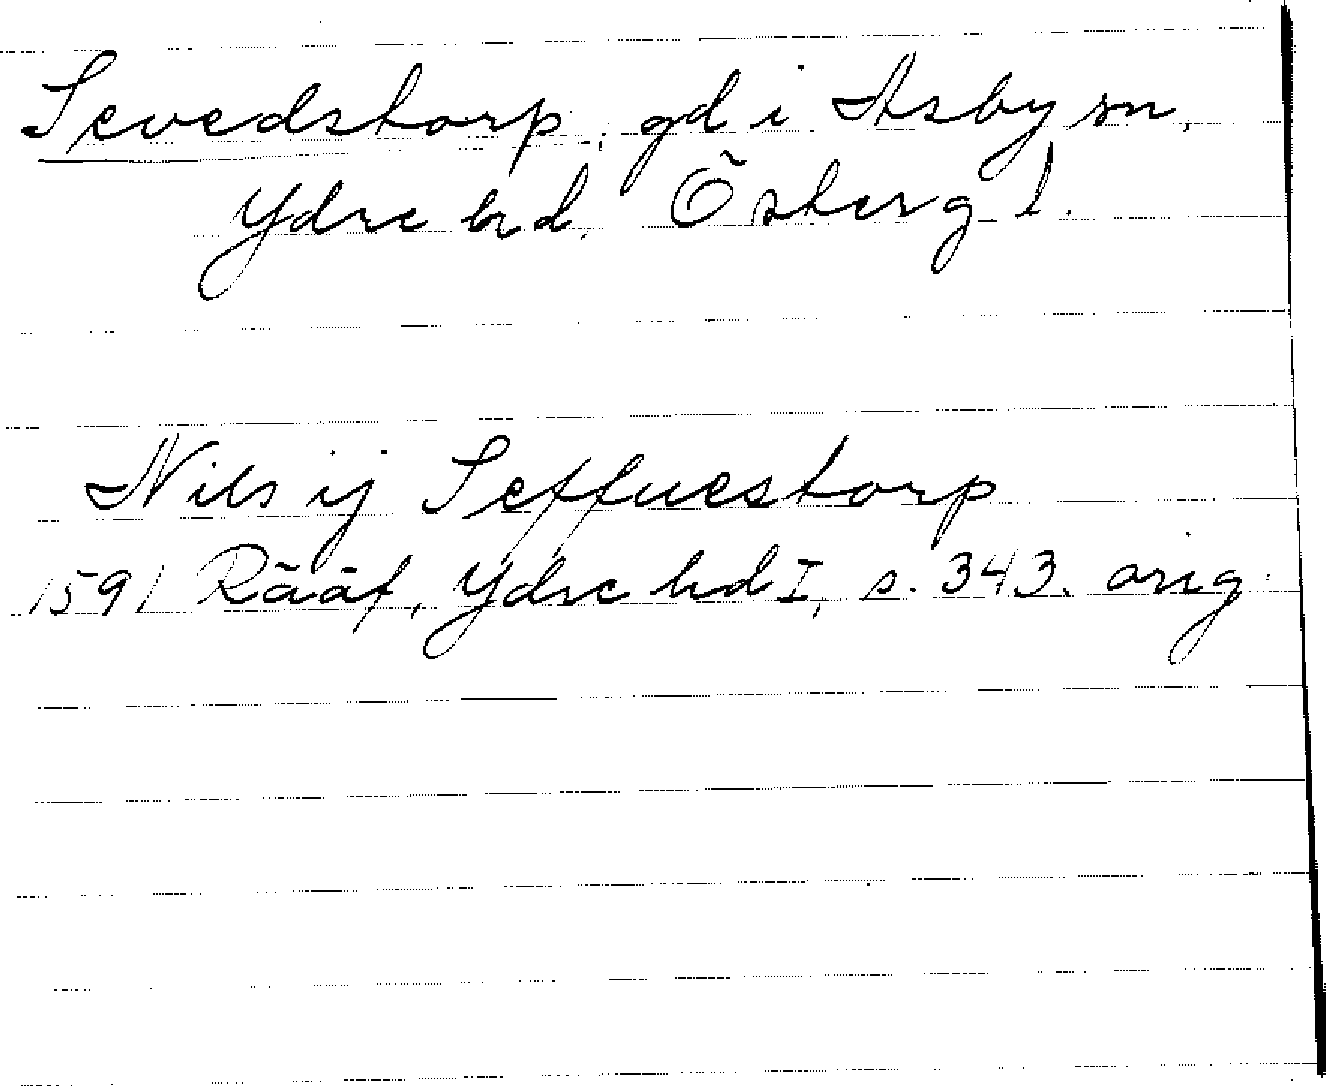 Sevedstorp, gd i Asby sn,
Ydre hd. Österg l.
Nils ij Seffuestorp
1591 Rääf, Ydre hd I, s. 343. orig.